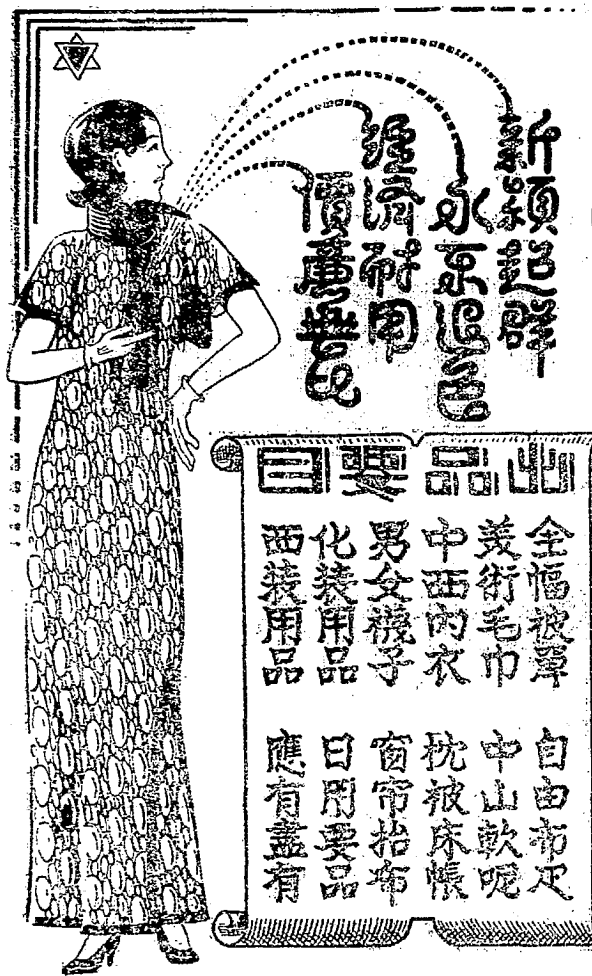 新穎超群
永不退色
經濟耐用
價廉無比
出品要目
全幅被單 自由布疋
美術毛巾 中山軟呢
中西內衣 枕被床帳
男女襪子 窗帘抬布
化装用品 日用要品
西装用品 應有盡有